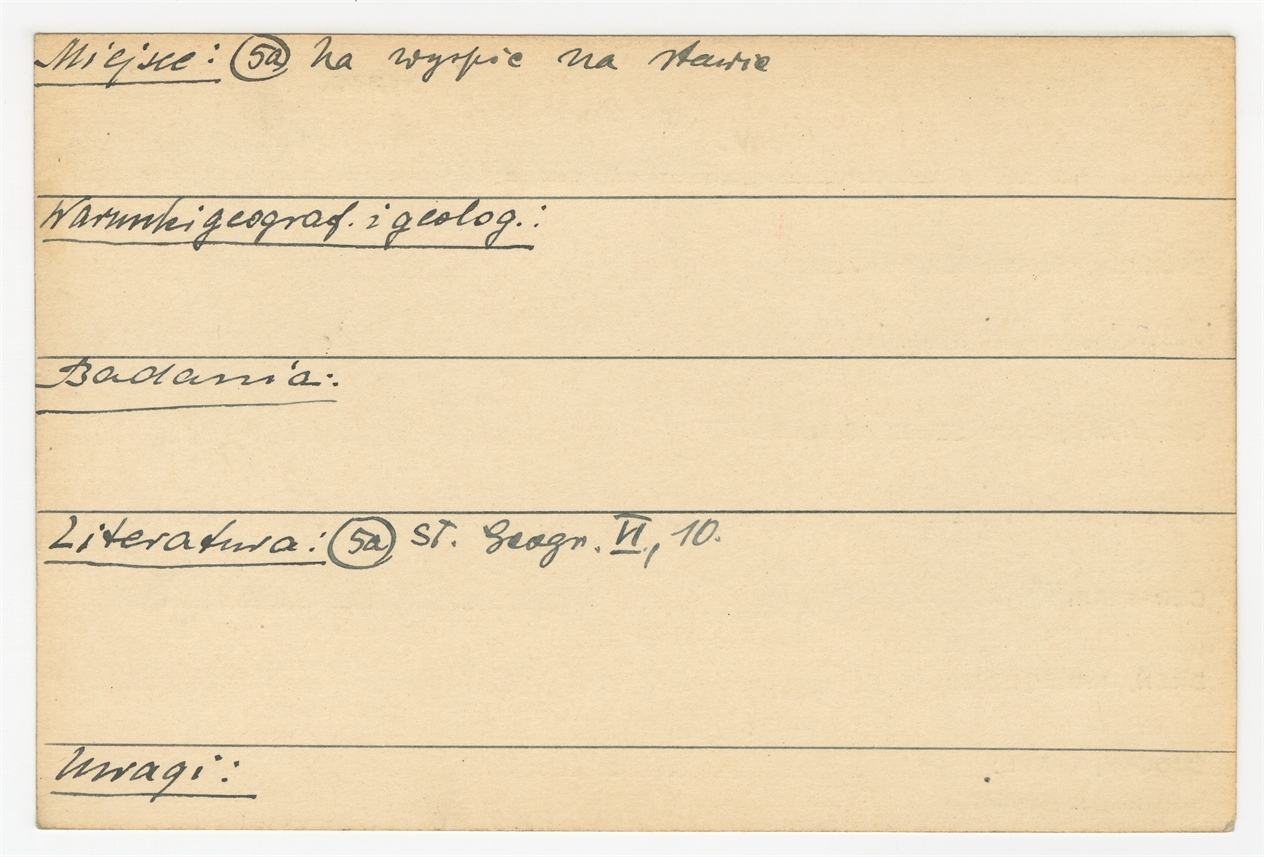 Miejsce: 5a na wyspie na stawie
Warunki geograf. i geolog.:
Badania:
Literatura: 5a St. Geogr. VI, 10.
Uwagi: